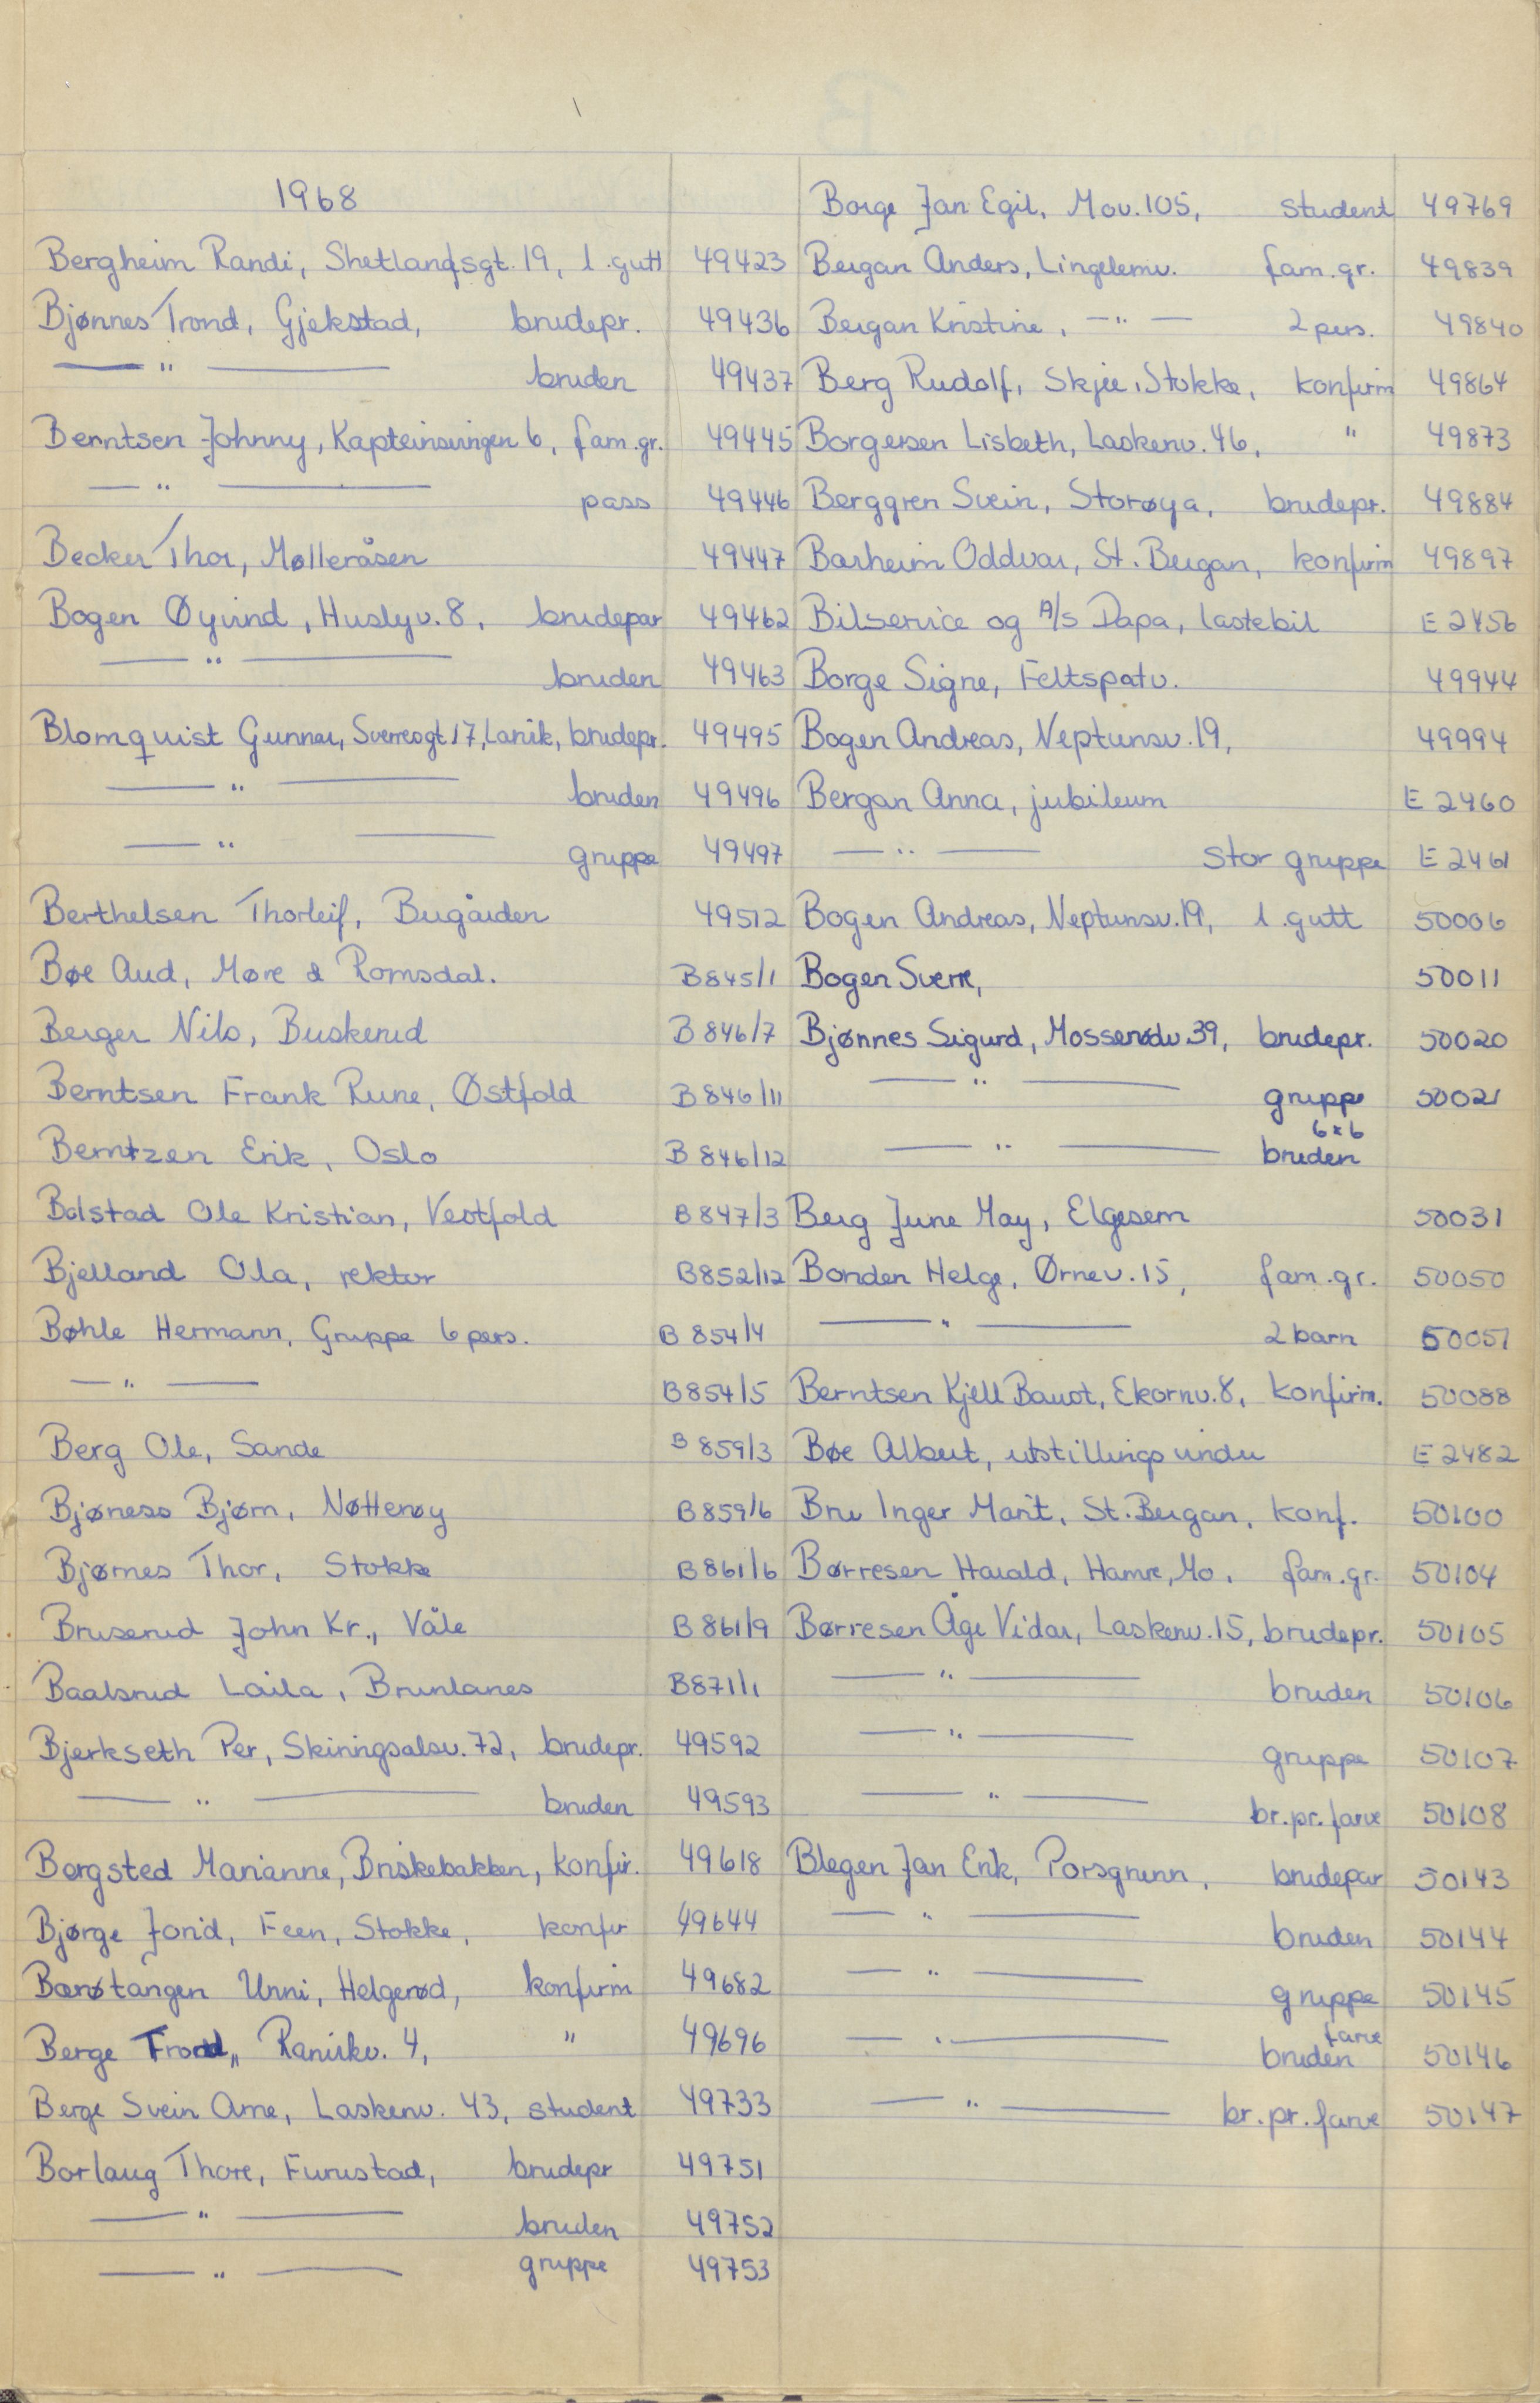 1968
Bergheim Randi, Shetlandsgt. 19, 1 gutt 49423
Bjønnes Trond, Gjekstad, brudepr. 49436
— " — bruden 49437
Berntsen Johnny, Kapteinsvingen 6, fam.gr. 49445
— " — pass 49446
Becker Thor, Mølleråsen 49447
Bogen Øyvind, Huslyv. 8, brudepar 49462
— " — bruden 49463
Blomquist Gunnar, Sverresgt. 17, Larvik, brudepr. 49495
— " — bruden 49496
— " — gruppe 49497
Berthelsen Thorleif, Bugården 49512
Bøe Aud, Møre & Romsdal. B 845/1
Berger Nils, Buskerud B 846/7
Berntsen Frank Rune, Østfold B 846/11
Berntzen Erik, Oslo B 846/12
Bolstad Ole Kristian, Vestfold B 847/3
Bjelland Ola, rektor B 852/12
Bøhle Hermann, Gruppe 6 pers. B 854/4
— " — B 854/5
Berg Ole, Sande B 859/3
Bjøness Bjørn, Nøtterøy B 859/6
Bjørnes Thor, Stokke B 861/6
Bruserud John Kr., Våle B 861/9
Baalsrud Laila, Brunlanes B 871/1
Bjerkseth Per, Skiringsalsv. 72, brudepr. 49592
— " — bruden 49593
Borgsted Marianne, Briskebakken, konfir. 49618
Bjørge Jorid, Feen, Stokke, konfir 49644
Bærøtangen Unni, Helgerød, konfirm 49682
Berge Trond, Ranvikv. 4, " 49696
Berge Svein Arne, Laskenv. 43, student 49733
Borlaug Thore, Furustad, brudepr 49751
— " — bruden 49752
— " — gruppe 49753
Borge Jan Egil, Mov. 105, student 49769
Bergan Anders, Lingelemv. fam.gr. 49839
Bergan Kristine, — " — 2 pers. 49840
Berg Rudolf, Skjee, Stokke, konfirm 49864
Borgersen Lisbeth, Laskenv. 46, " 49873
Berggren Svein, Storøya, brudepr. 49884
Barheim Oddvar, St. Bergan, konfirm 49897
Bilservice og A/S Dapa, lastebil E 2456
Borge Signe, Feltspatv. 49944
Bogen Andreas, Neptunsv. 19, 49994
Bergan Anna, jubileum E 2460
— " — stor gruppe E 2461
Bogen Andreas, Neptunsv. 19, 1 gutt 50006
Bogen Sverre, 50011
Bjønnes Sigurd, Mosserødv. 39, brudepr. 50020
— " — gruppe 50021
6x6
— " — bruden
Berg June May, Elgesem 50031
Bonden Helge, Ørnev. 15, fam.gr. 50050
— " — 2 barn 50051
Berntsen Kjell, Ekornv. 8, konfirm. 50088
Bøe Albert, utstillingsvindu E 2482
Bru Inger Marit, St. Bergan, konf. 50100
Børresen Harald, Hamre, Mo, fam.gr. 50104
Børresen Åge Vidar, Laskenv. 15, brudepr. 50105
— " — bruden 50106
— " — gruppe 50107
— " — br.pr. farve 50108
Blegen Jan Erik, Porsgrunn, brudepar 50143
— " — bruden 50144
— " — gruppe 50145
farve
— " — bruden 50146
— " — br.pr. farve 50147